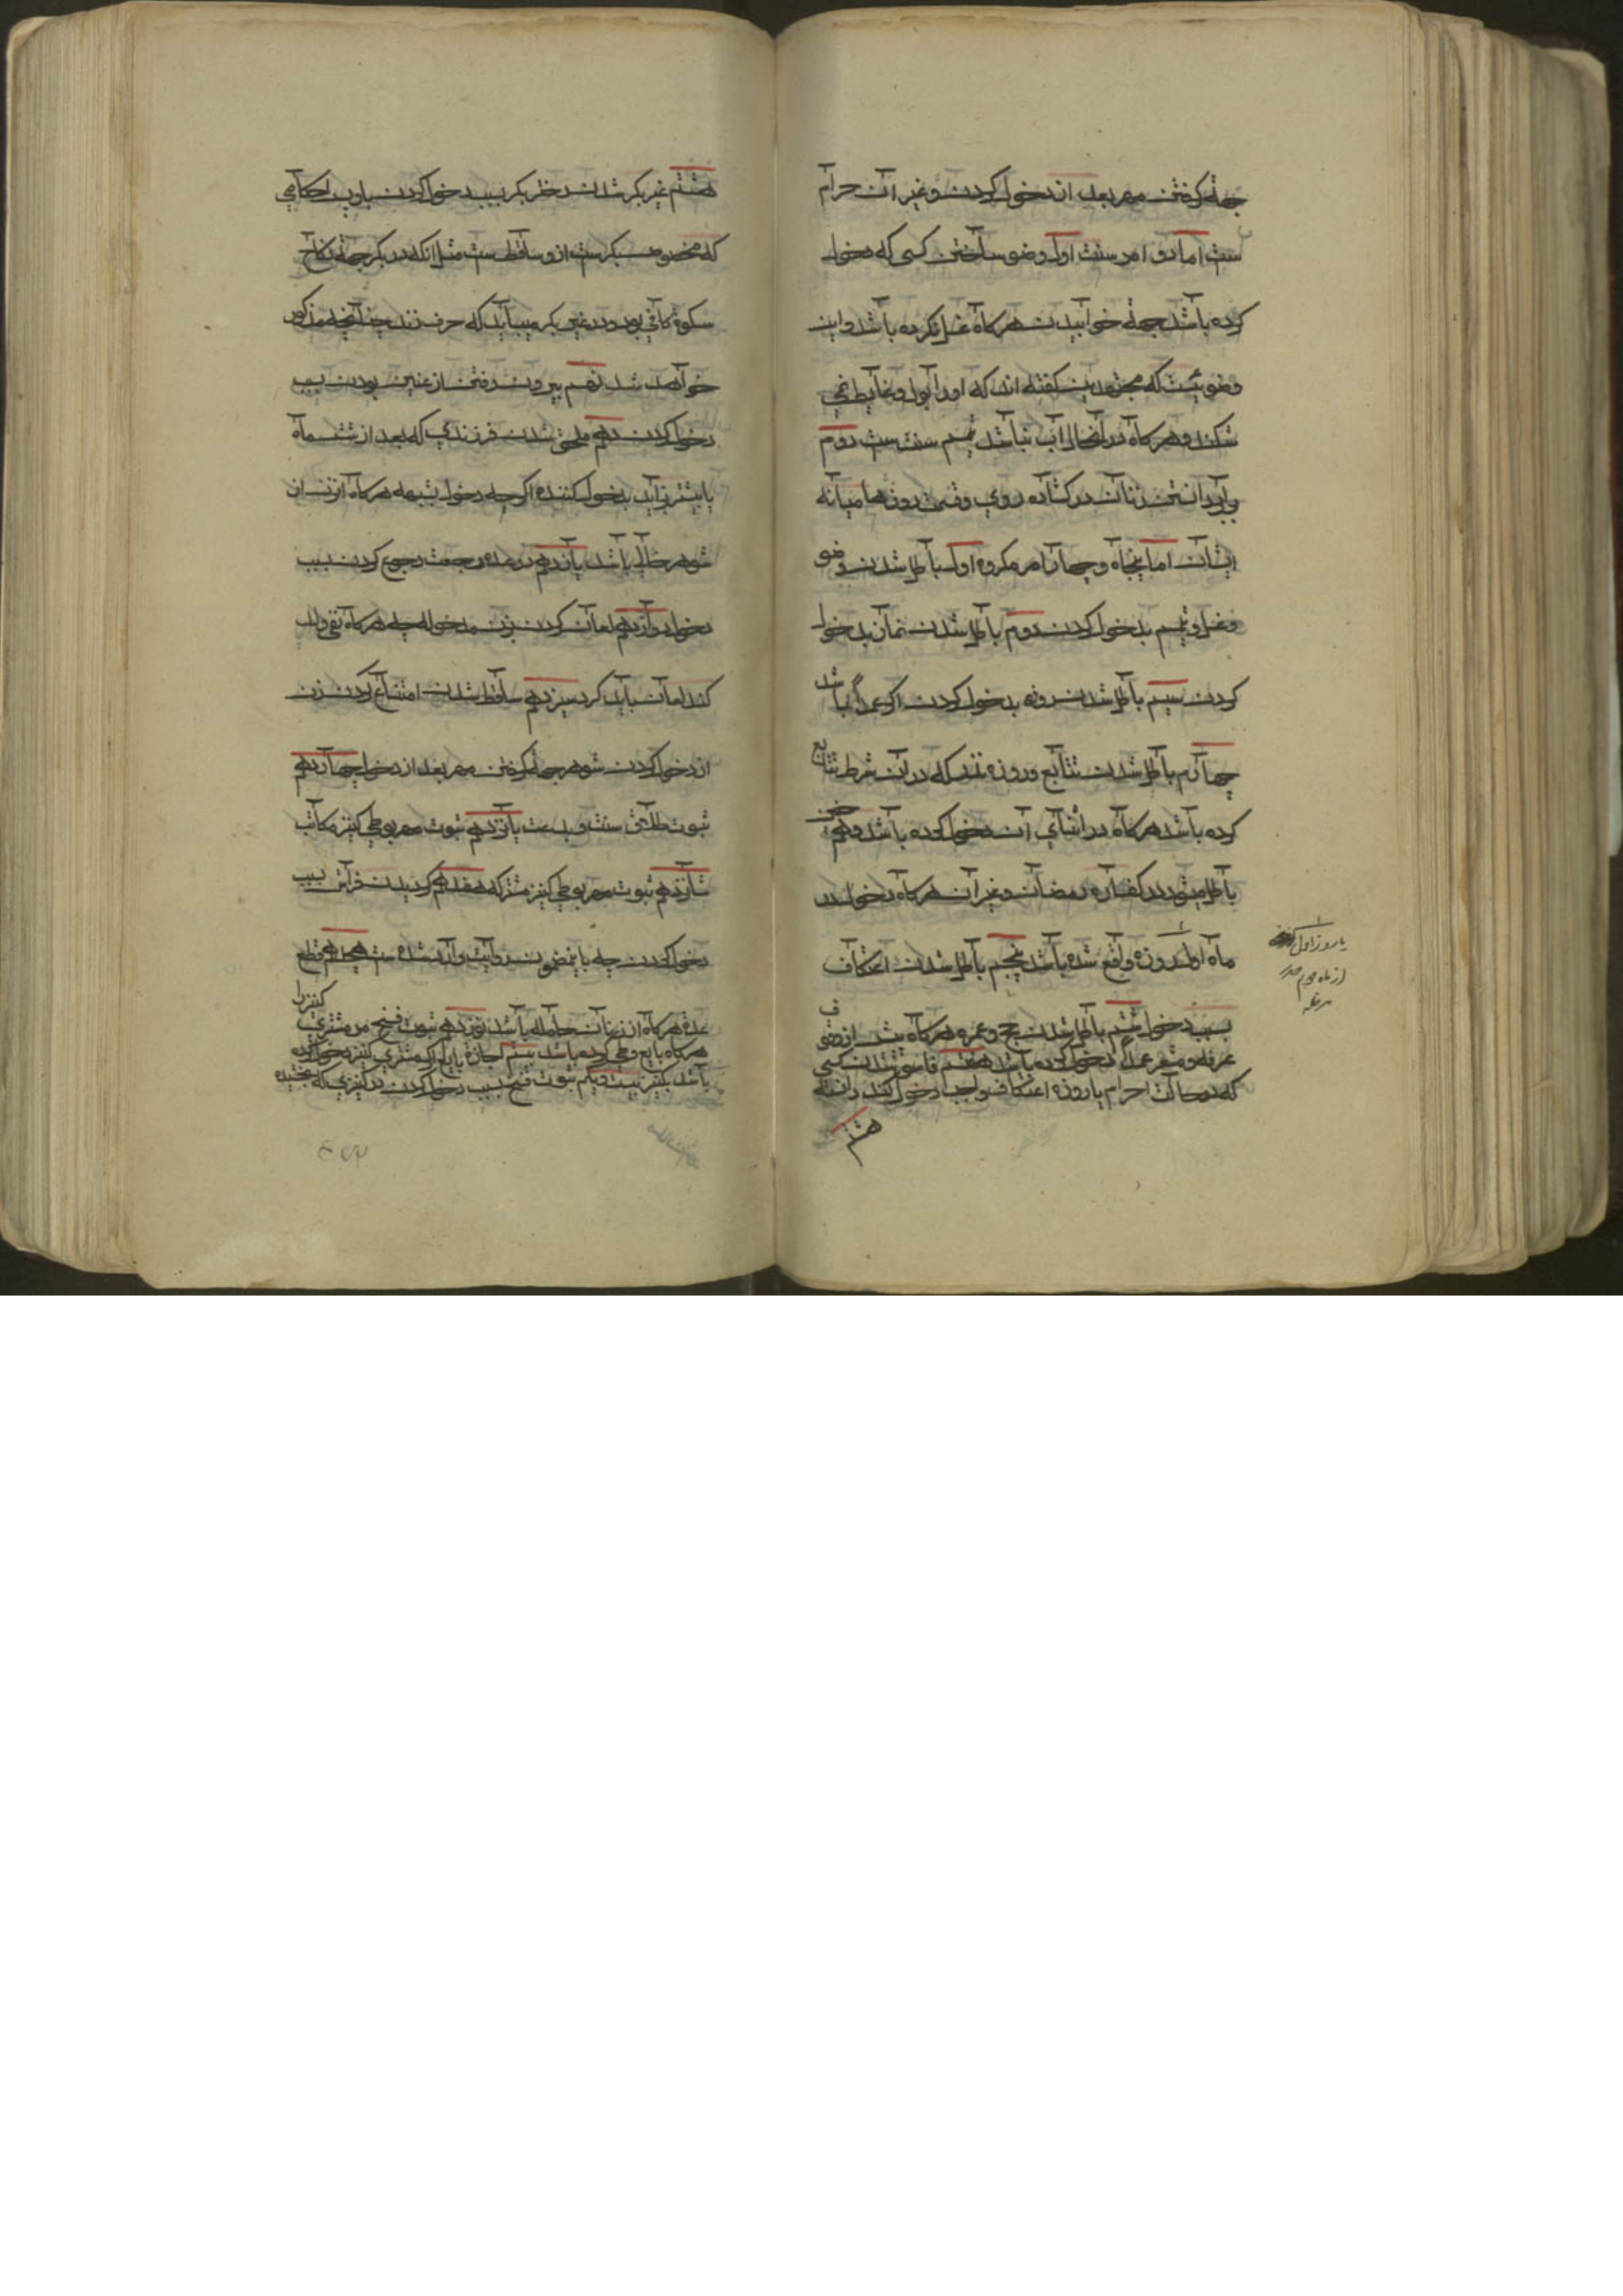 جهة گرفتن مهر بعد از دخول کردن و غیر آن حرام
ست اما دو امر سنت اول وضو ساختن کسی که دخول
کرده باشد جهة خوابیدن هرگاه غسل نکرده باشد و این
وضوئیست که مجتهدین گفته اند که او را بول و غایط نمی
شکند و هرگاه در آنحال آب نباشد تیمم سنت ست دوم
زنان در گشاده روی و قسمت روزها میانه
ایشان اما پنجاه و چهار امر مکروه اول باطل شدن وضو
و غسل و تیمم بدخول کردن دوم باطل شدن نماز بدخول
کردن سیم باطل شدن روزه بدخول کردن اگر عمداً باشد
چهارم باطل شدن تتابع و روزه نذر که در آن شرط تتابع
کرده باشد هرگاه در اثنای آن دخول کرده باشد
باطل میشود در کفاره رمضان و غیر آن هرگاه دخول در
ماه اول روزه واقع شده باشد پنجم باطل شدن اعتکاف
بسبب دخول ششم باطل شدن حج و عمره هرگاه پیش از وقوف
عرفه و مشعر عمداً دخول کرده باشد هفتم فاسق شدن کسی
که در حالت احرام یا روزه اعتکاف واجب دخول کند دانسته
هشتم
یا روز اول
از ماه دوم
هشتم غیر بکر شدن دختر بکر بسبب دخول کردن باو پس احکامی
که مخصوص بکرست ازو ساقط ست مثل آنکه در بکر جهة نکاح
سکوة کافی بود و در غیر بکر میباید که حرف زند چنانچه مذکور
خواهد شد نهم بیرون رفتن از عنین بودن بسبب
دخول کردن دهم ملحق شدن فرزندی که بعد از شش ماه
یا بیشتر زاید بدخول کننده اگرچه دخول شبهه هرگاه آن زن از
شوهر خالی باشد یازدهم در عده رجعت رجوع کردن بسبب
دخول دوازدهم لعان کردن بزن مدخوله چه هرگاه نفی ولد
کند لعان باید کرد سیزدهم ساقط شدن امتناع کردن زن
از دخول کردن شوهر جهة گرفتن مهر بعد از دخول چهاردهم
ثبوت طلاق سنت و بدعت پانزدهم ثبوت مهر بوطی کنیز مکاتب
شانزدهم ثبوت مهر بوطی کنیز مشترکه هفدهم گردیدن فراش بسبب
دخول کردن چه باینمضمون روایت وارد شده ست هجدهم قطع
عده هرگاه آن زن حامله باشد نوزدهم ثبوت فسخ مر مشتری کنیز را
هرگاه بایع وطی کرده باشد بیستم اجازه بایع اگر مشتری کنیز دخول کرده
باشد بکنیز بیست و یکم ثبوت فسخ بسبب دخول کردن در کنیزی که بخشیده